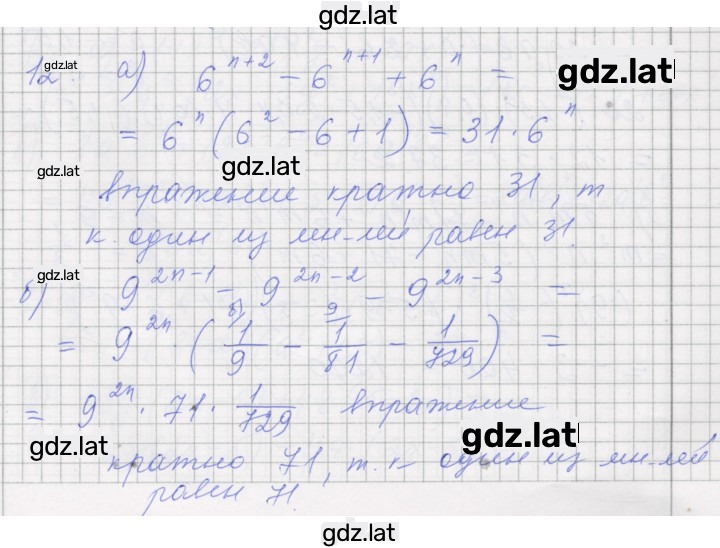 gdz.lat
12. а) 6^{n+2} - 6^{n+1} + 6^n =
gdz.lat
gdz.lat
= 6^n (6^2 - 6 + 1) = 31 · 6^n
gdz.lat
gdz.lat
выражение кратно 31, т
к. один из мн-лей равен 31.
gdz.lat
б) 9^{2n-1} - 9^{2n-2} - 9^{2n-3} =
= 9^{2n} (\frac{1}{9} - \frac{1}{81} - \frac{1}{729}) =
= 9^{2n} · 71 · \frac{1}{729} выражение
gdz.lat
gdz.lat
кратно 71, т.к один из мн-лей
равен 71.
gdz.lat